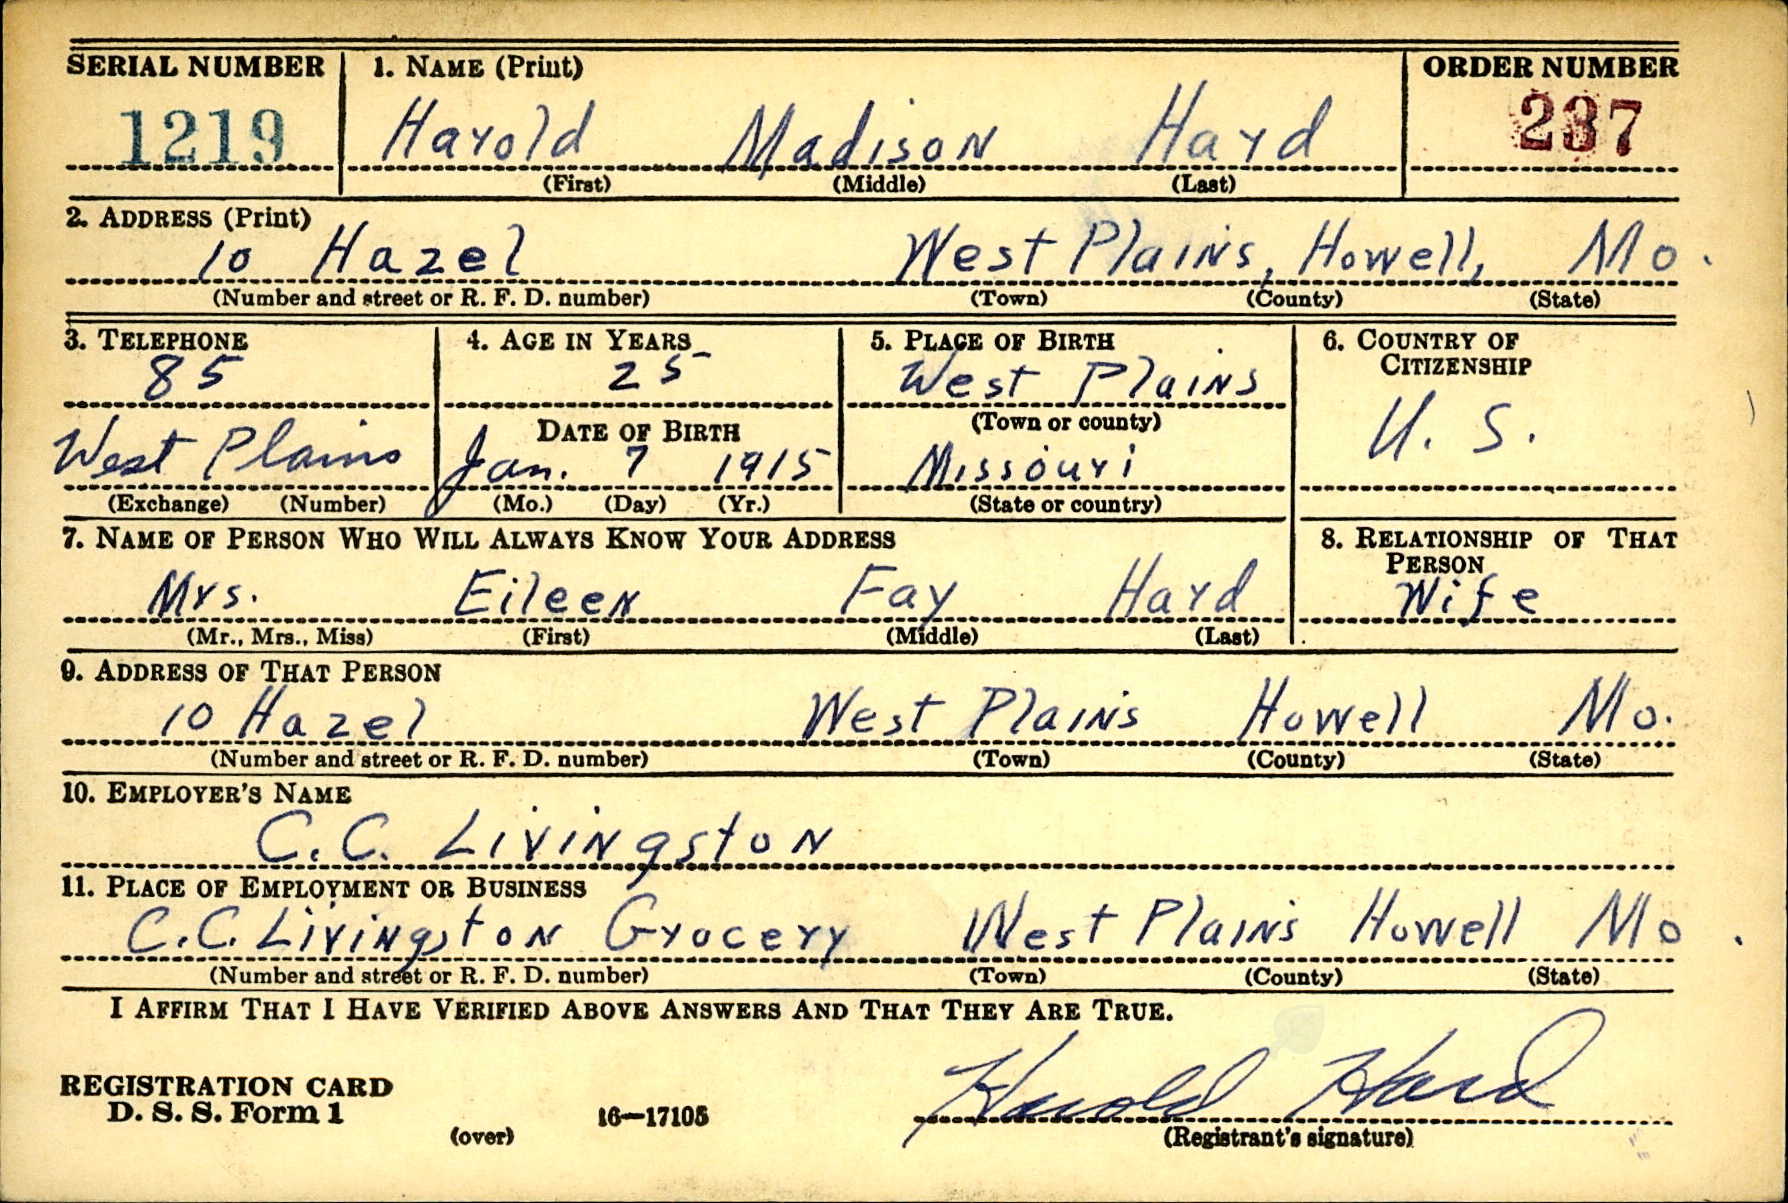 SERIAL NUMBER 1. NAME (Print) ORDER NUMBER
1219 Harold Madison Hard 237
(First) (Middle) (Last)
2. ADDRESS (Print)
10 Hazel West Plains, Howell, Mo.
(Number and street or R. F. D. number) (Town) (County) (State)
3. TELEPHONE 4. AGE IN YEARS 5. PLACE OF BIRTH 6. COUNTRY OF
CITIZENSHIP
85 25 West Plains
(Town or county)
DATE OF BIRTH U. S.
West Plains Jan. 7 1915 Missouri
(Exchange) (Number) (Mo.) (Day) (Yr.) (State or country)
7. NAME OF PERSON WHO WILL ALWAYS KNOW YOUR ADDRESS 8. RELATIONSHIP OF THAT
PERSON
Mrs. Eileen Fay Hard Wife
(Mr., Mrs., Miss) (First) (Middle) (Last)
9. ADDRESS OF THAT PERSON
10 Hazel West Plains Howell Mo.
(Number and street or R. F. D. number) (Town) (County) (State)
10. EMPLOYER'S NAME
C. C. Livingston
11. PLACE OF EMPLOYMENT OR BUSINESS
C. C. Livingston Grocery West Plains Howell Mo.
(Number and street or R. F. D. number) (Town) (County) (State)
I AFFIRM THAT I HAVE VERIFIED ABOVE ANSWERS AND THAT THEY ARE TRUE.
REGISTRATION CARD Harold Hard
D. S. S. Form 1 16—17105
(over) (Registrant's signature)